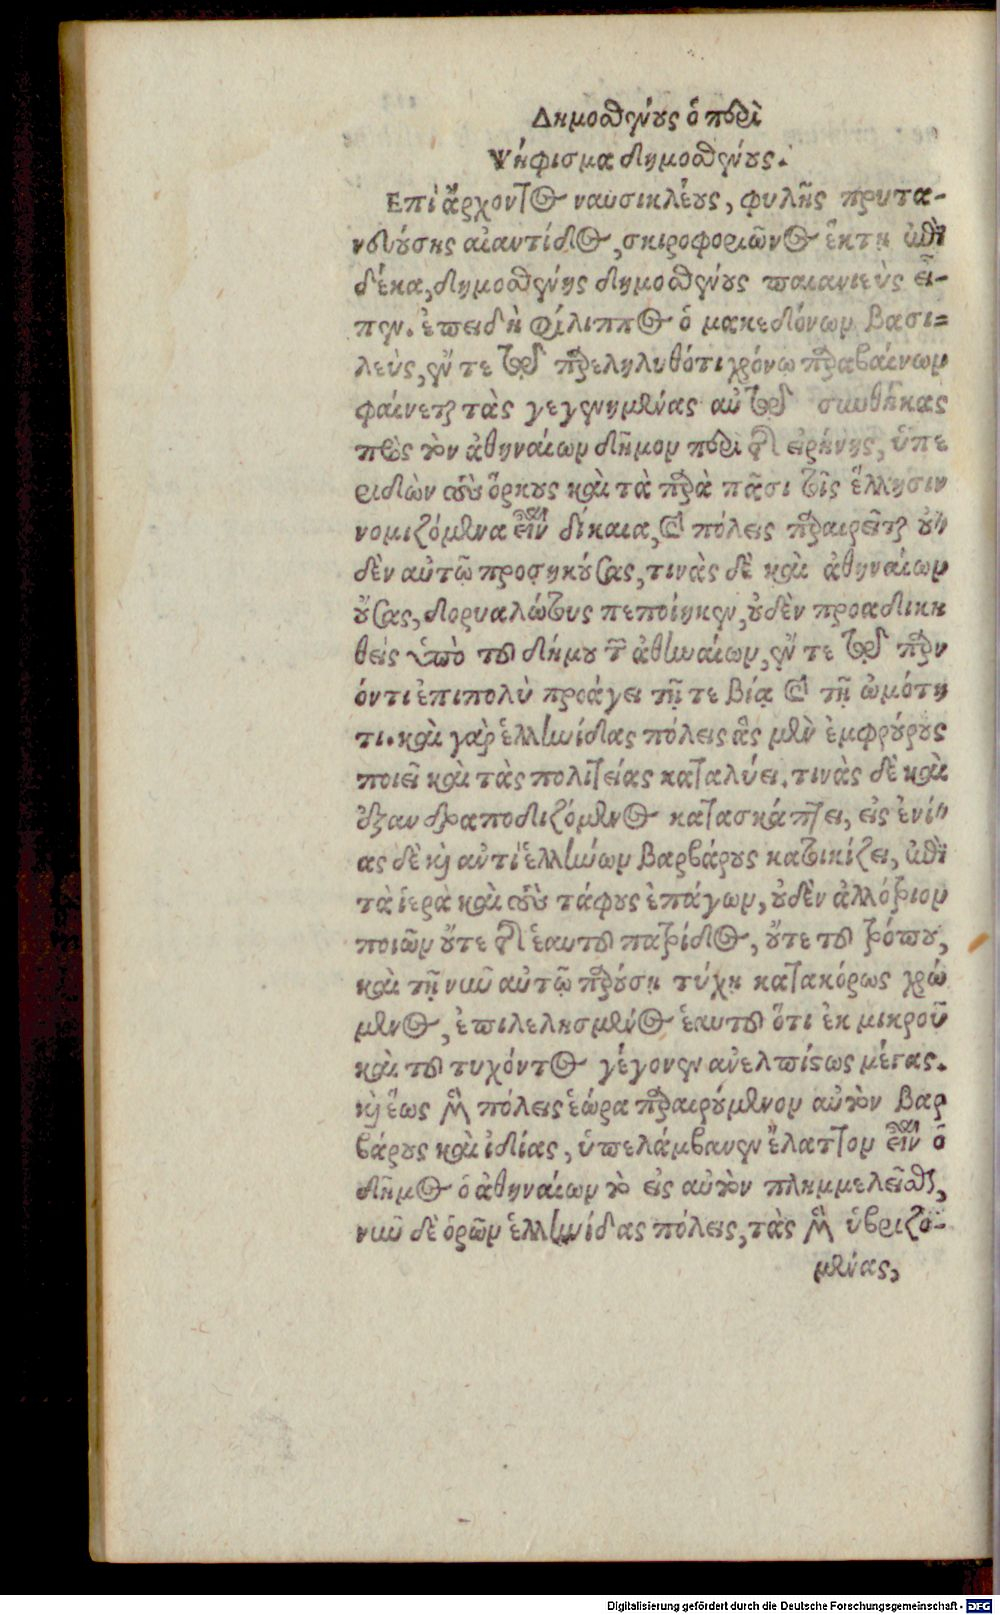 Δημοσθένους ὁ περὶ
Ψήφισμα δημοσθένους.
Ἐπὶ ἄρχοντος ναυσικλέους, φυλῆς πρυτα-
νευούσης αἰαντίδος, σκιροφοριῶνος ἕκτῃ ἐπὶ
δέκα, δημοσθένης δημοσθένους παιανιεὺς εἶ-
πεν. ἐπειδὴ φίλιππος ὁ μακεδόνων βασι=
λεὺς, ἔν τε τῷ παρεληλυθότι χρόνῳ παραβαίνων
φαίνεται τὰς γεγενημένας αὐτῷ συνθήκας
πρὸς τὸν ἀθηναίων δῆμον περὶ τῆς εἰρήνης, ὑπε
ριδὼν τοὺς ὅρκους καὶ τὰ παρὰ πᾶσι τοῖς ἕλλησιν
νομιζόμενα εἶναι δίκαια, καὶ πόλεις παραιρεῖται οὐ-
δὲν αὐτῷ προσηκούσας, τινὰς δὲ καὶ ἀθηναίων
οὔσας, δορυαλώτους πεποίηκεν, οὐδὲν προαδικη
θεὶς ὑπὸ τοῦ δήμου τῶν ἀθηναίων, ἔν τε τῷ παρόν
όντι ἐπιπολὺ προάγει τῇ τε βίᾳ καὶ τῇ ὠμότη
τι. καὶ γὰρ ἑλληνίδας πόλεις ἃς μὲν ἐμφρούρους
ποιεῖ καὶ τὰς πολιτείας καταλύει. τινὰς δὲ καὶ
ἐξανδραποδιζόμενος κατασκάπτει, εἰς ἐνί-
ας δὲ καὶ ἀντὶ ἑλλήνων βαρβάρους κατοικίζει, ἐπὶ
τὰ ἱερὰ καὶ τοὺς τάφους ἐπάγων, οὐδὲν ἀλλότριον
ποιῶν οὔτε τῆς ἑαυτοῦ πατρίδος, οὔτε τοῦ τρόπου,
καὶ τῇ νῦν αὐτῷ παρούσῃ τύχῃ κατακόρως χρώ
μενος, ἐπιλελησμένος ἑαυτοῦ ὅτι ἐκ μικροῦ
καὶ τοῦ τυχόντος γέγονεν ἀνελπίστως μέγας.
καὶ ἕως μὲν πόλεις ἑώρα παραιρούμενον αὐτὸν βαρ
βάρους καὶ ἰδίας, ὑπελάμβανεν ἔλαττον εἶναι ὁ
δῆμος ὁ ἀθηναίων τὸ εἰς αὐτὸν πλημμελεῖσθαι,
νῦν δὲ ὁρῶν ἑλληνίδας πόλεις, τὰς μὲν ὑβριζο-
μένας,
Digitalisierung gefördert durch die Deutsche Forschungsgemeinschaft - DFG